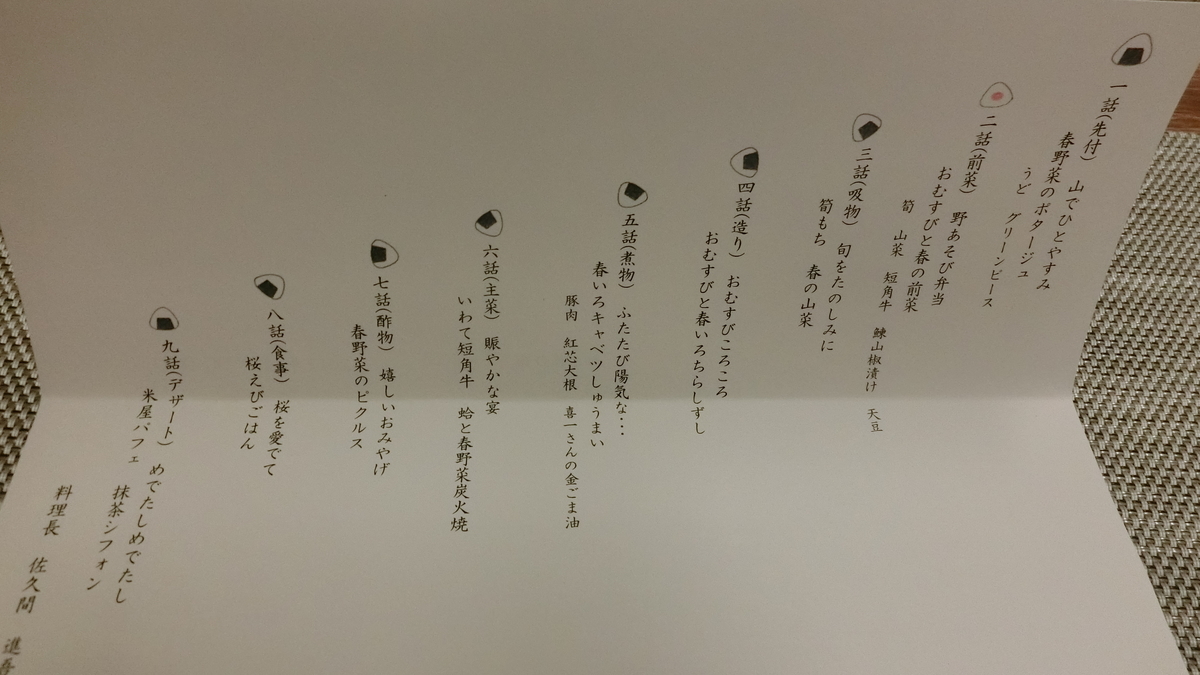 一話(先付)　山でひとやすみ
春野菜のポタージュ
うど　グリーンピース
二話(前菜)　野あそび弁当
おむすびと春の前菜
筍　山菜　短角牛　鰊山椒漬け　天豆
三話(吸物)　旬をたのしみに
筍もち　春の山菜
四話(造り)　おむすびころころ
おむすびと春いろちらしずし
五話(煮物)　ふたたび陽気な・・・
春いろキャベツしゅうまい
豚肉　紅芯大根　喜一さんの金ごま油
六話(主菜)　賑やかな宴
いわて短角牛　蛤と春野菜炭火焼
七話(酢物)　嬉しいおみやげ
春野菜のピクルス
八話(食事)　桜を愛でて
桜えびごはん
九話(デザート)　めでたしめでたし
米屋パフェ　抹茶シフォン
料理長　佐久間　進吾